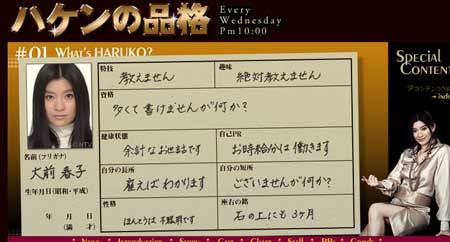 ハケンの品格
Every
Wednesday
Pm10:00
#01 What's HARUKO?
特技
教えません
趣味
絶対教えません
資格
多くて書けませんが何か?
健康状態
余計なお世話です
自己PR
お時給分は働きます
自分の長所
雇えばわかります
自分の短所
ございませんが何か?
性格
ほんとうは不器用です
座右の銘
石の上にも3ヶ月
©NTV
名前(フリガナ)
大前春子
生年月日(昭和・平成)
年 月 日
(満 才)
SPECIAL
CONTENT
News
Introduction
Story
Cast
Chart
Staff
BBS
Goods